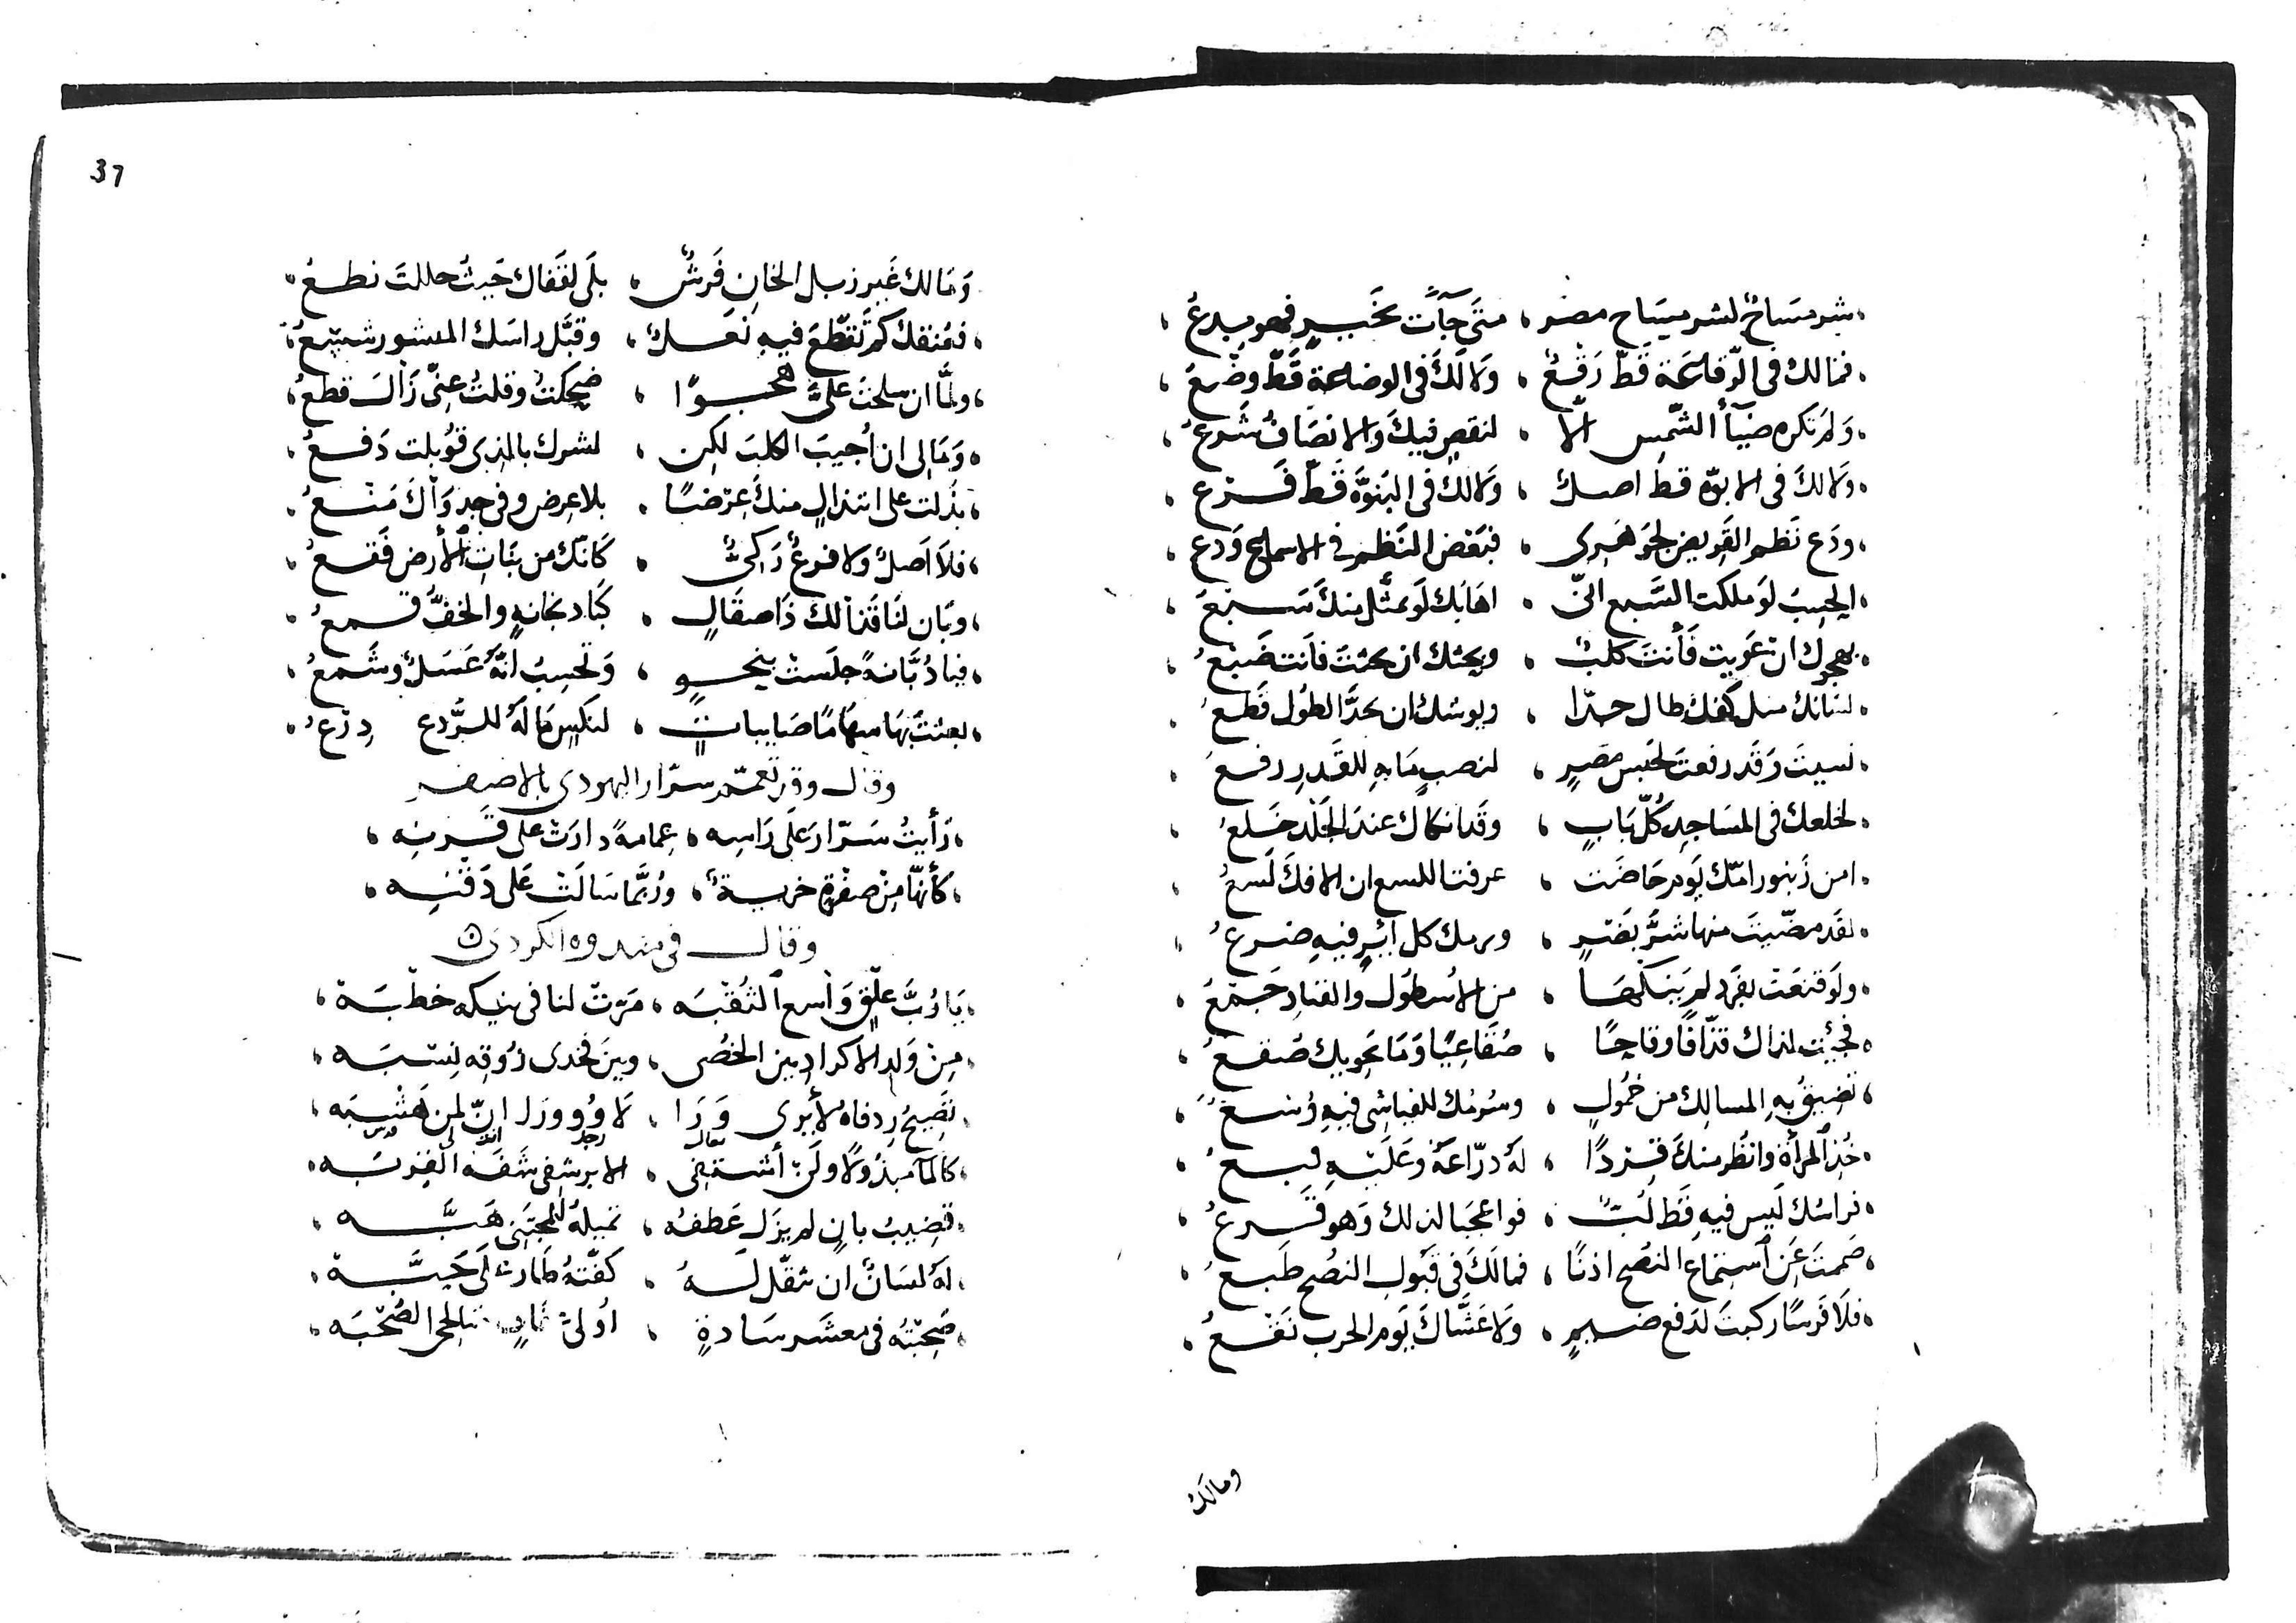 شرمساحٌ لشرمساح مصر ، متى جآت بخيرٍ فهو بدعُ
فمالك في الرّقاعة قطّ رقعٌ ، ولا لك في الوضاعة قطّ وضعُ
ولم تكره ضيآ الشّمس الّا ، لنقصٍ فيك والانصاف شرعُ
ولا لك في الابوّة قط اصلٌ ، ولا لك في البنوّة قطّ فرع
ودَع نظم القريض لجوهري ، فبعض النظم في الاسماع ودع
الحسبُ لو ملكت السّبع انّي ، اهابك لو تمثّل منك سبعُ
بهجوك ان عويت فأنت كلبٌ ، وبحثك ان بحثت فأنت ضبعُ
لسانك مثل كفك طال جدّا ، ويوشك ان بحدّ الطول قطعُ
نسيت وقد رفعت لحبس مصرٍ ، لنصبٍ ما به للقدر رفعُ
لخلعك في المساجد كلّ بابٍ ، وقد انكاك عند الجلد خلعُ
امن زنبور امّك يوم حاضت ، عرفت اللسع ان الافك لسعُ
لقد مصّيت منها شرّ بظرٍ ، كل ايرٍ فيه ضرعُ
ولو قنعت بفرد لم ينكها ، من الاسطول والفناد جمعُ
فجئت لذاك قذّافًا وقاحًا ، صُفاعيًا وما يحويك صفعُ
تضيق به المسالك من خمولٍ ، وسرمك للفياشي فيه وُسعُ
خذ المرأة وانظر منك قردًا ، له درّاعة وعليه قبعُ
فراسك ليس فيه قط لبٌّ ، فواعجبا لذلك وهو قرعُ
صممت عن استماع النصح اذنًا ، فمالك في قبول النصح طبعُ
فلا فرسًا ركبت لدفع ضيمٍ ، ولا غشّاك يوم الحرب نقعُ
ومالك
37
ومالك غير زبل الخان فرشٌ ، بلى لقفاك حيث حللت نطعُ
فعُنقك كم تقطّع فيه نعلٌ ، وقبّل راسك المنشور شسعُ
ولمّا ان سلحت عليّ هجوًا ، ضحكت وقلت عنّي زال قطعُ
ومالي ان أجيب الكلب لكن ، لشرك بالذي قوبلت دفعُ
بذلت على ابتذالٍ منك عرضًا ، بلا عرض وفي جدواك منعُ
فلا اصلٌ ولا فرعٌ زكيٌّ ، كانّك من بنات الأرض فقعُ
وبان لنا قذالك ذا صقالٍ ، كبادنجانةٍ والخفّ قمعُ
فيا ذبّانةً جلست بنحوٍ ، وتحسبُ انّه عسلٌ وشمعُ
بعثت بها سهامًا صايباتٍ ، لنكسٍ ما له للرّدع درعُ
وقال وقد تعمّم سرّار اليهودي بالاصفر
رأيتُ سرّار على راسه ، عمامةً دارت على قرنه
كأنّها من صفرةٍ خريةٌ ، وربّما سالت على ذقنه
وقال في الكردي
يا رُبّ علقٍ واسع الثقبه ، مرّت لنا في نيكه خطبَة
من ولد الاكراد بين الخصى ، وبين فخدي ذوقه نسبَه
تصيح ردفاه لأيري ورا ، لا وُوورا انّ لمن هشبه
كالمآ مبذولًا ولكن أشتفي ، الا برشفي شفة القربَه
قضيب بانٍ لم يزل عطفه ، تميله للمجتني هبَّه
له لسانٌ ان ثقّل له ، كفّته طارت على حبَّة
صحبته في معشر سادةٍ ، الصُحبَه